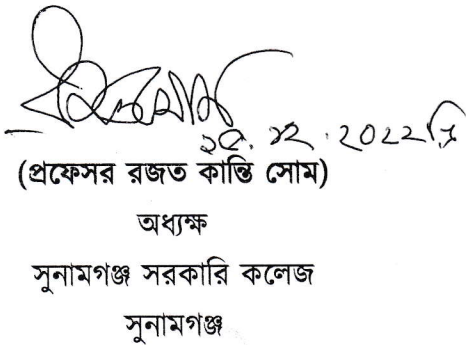 ২৫.১২.২০২২খ্রি
(প্রফেসর রজত কান্তি সোম)
অধ্যক্ষ
সুনামগঞ্জ সরকারি কলেজ
সুনামগঞ্জ